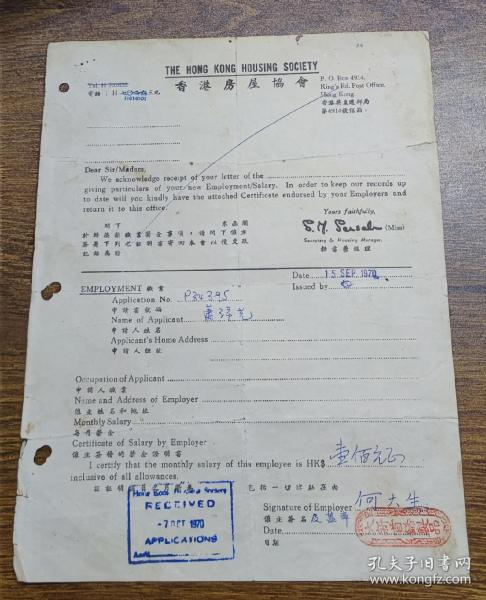 THE HONG KONG HOUSING SOCIETY
香港房屋協會
P. O. Box 4914,
King's Rd. Post Office,
Hong Kong.
香港英皇道郵局
第4914號信箱
Dear Sir/Madam,
We acknowledge receipt of your letter of the
giving particulars of your new Employment/Salary. In order to keep our records up
to date will you kindly have the attached Certificate endorsed by your Employers and
return it to this office.
Yours faithfully,
(Miss)
Secretary & Housing Manager.
Date 15 SEP. 1970
Issued by
EMPLOYMENT 職業
Application No. P34395
申請書號碼
Name of Applicant
申請人姓名
Applicant's Home Address
申請人住址
Occupation of Applicant
申請人職業
Name and Address of Employer
僱主姓名和地址
Monthly Salary
每月薪金
Certificate of Salary by Employer
僱主簽發的薪金證明書
I certify that the monthly salary of this employee is HK$ 壹佰元正
inclusive of all allowances.
包括一切津貼在內
Signature of Employer 何大生
僱主簽名
Date
日期
Hong Kong Housing Society
RECEIVED
-7 OCT 1970
APPLICATIONS
孔夫子旧书网
www.kongfz.com